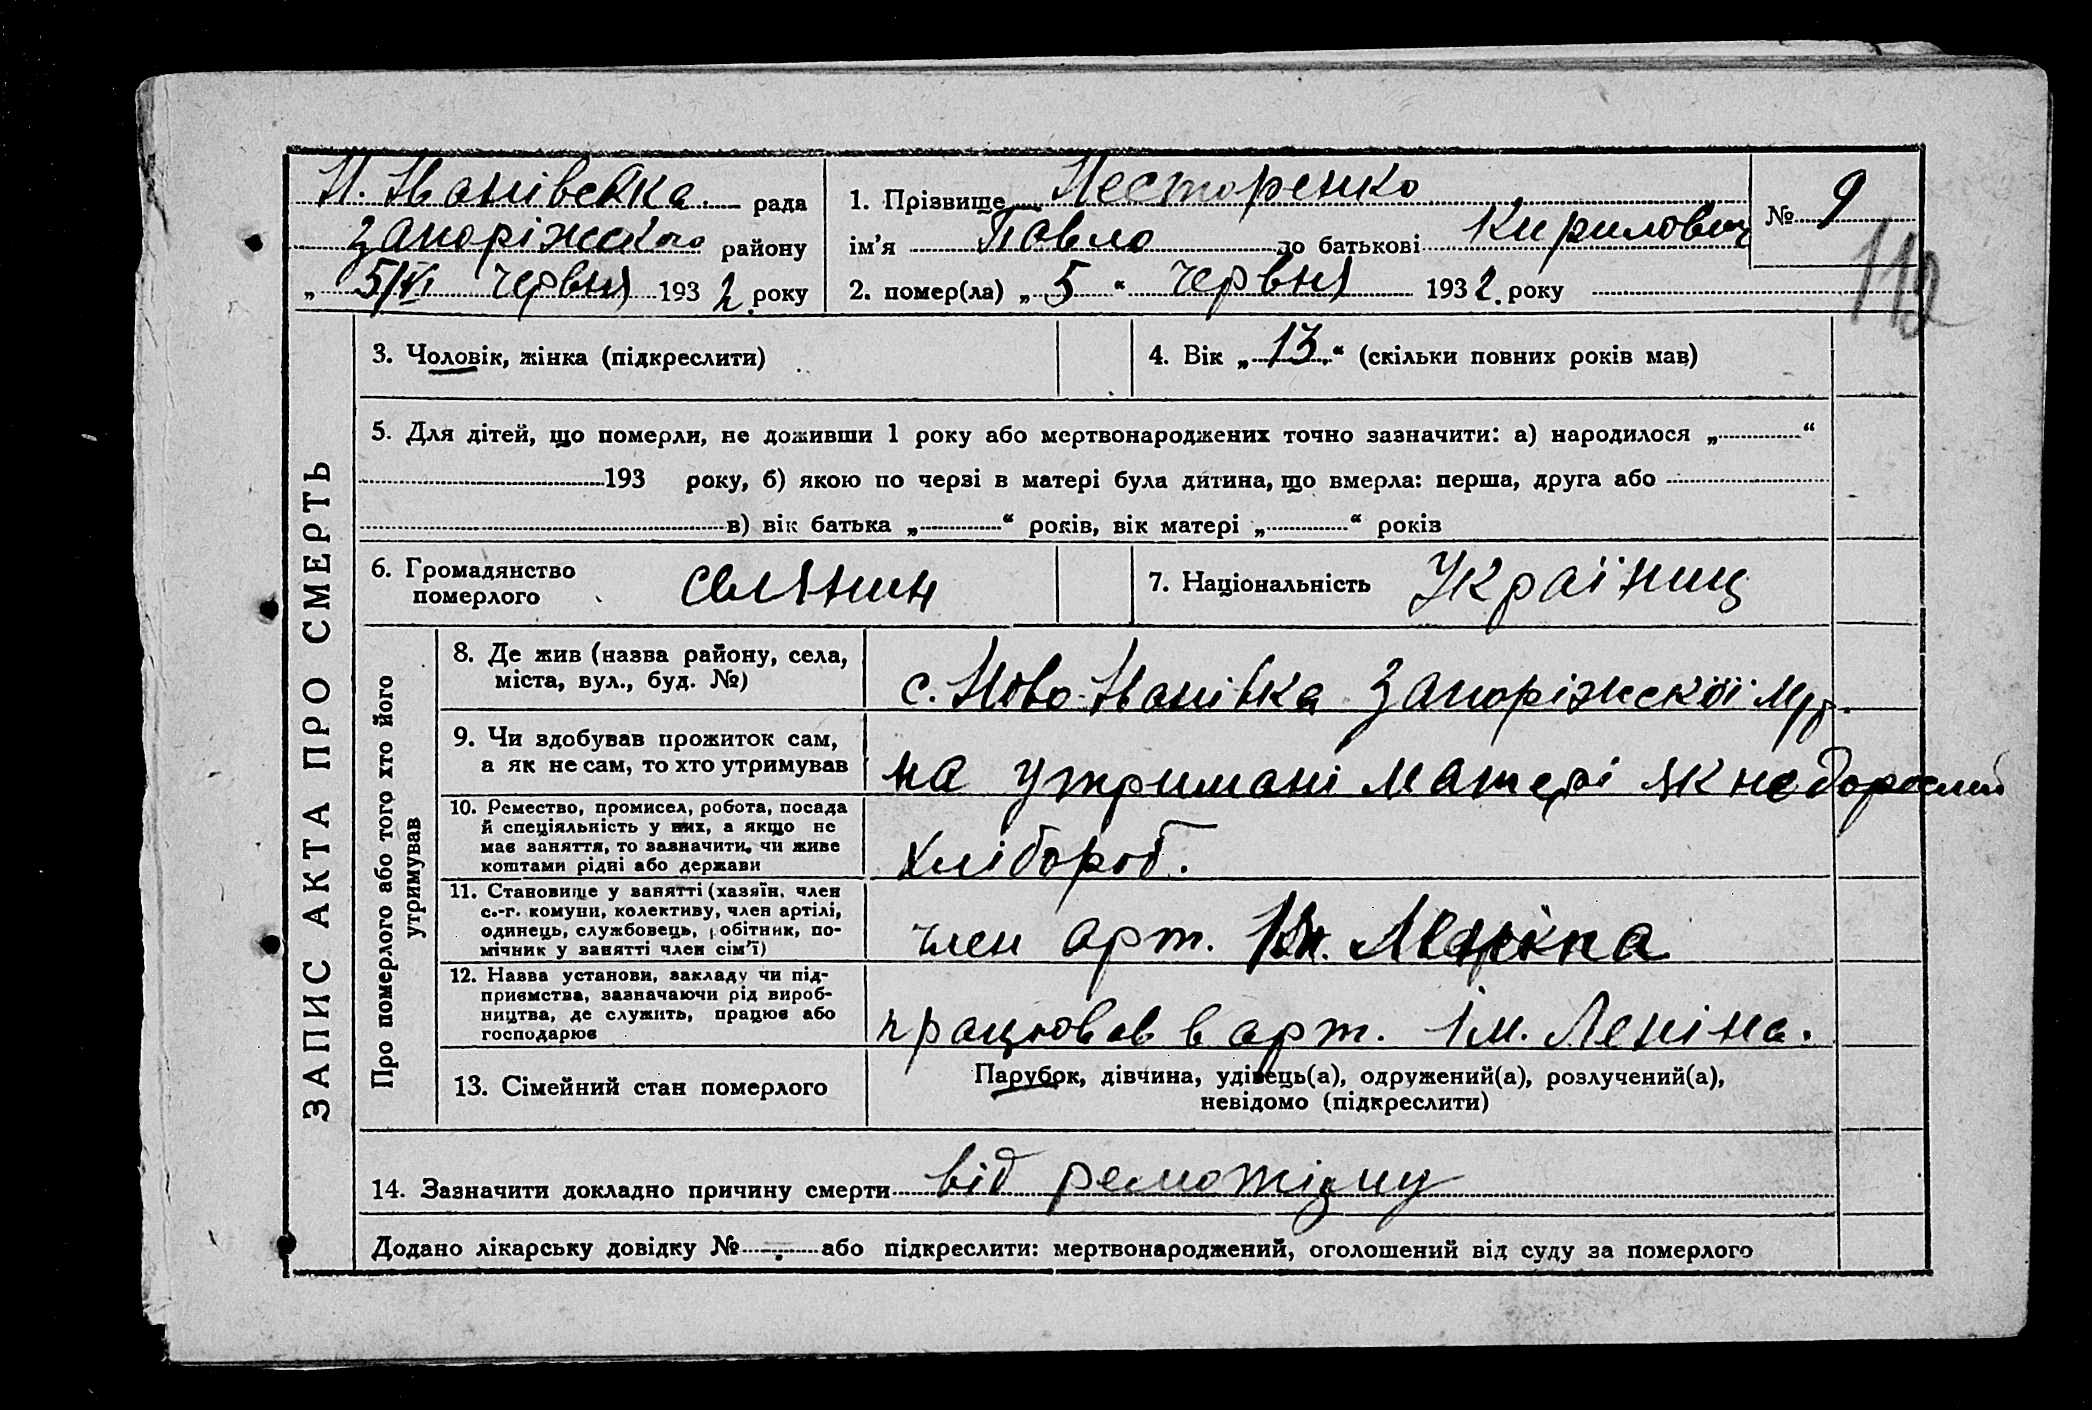 Н. Іванівська рада
Запоріжського району
„ 5/VI червня 1932 року
1. Прізвище Несторенко
ім’я Павло по батькові Кирилович
2. помер(ла) „ 5 “ червня 1932. року
№ 9
112
ЗАПИС АКТА ПРО СМЕРТЬ
3. Чоловік, жінка (підкреслити)
4. Вік „ 13 “ (скільки повних років мав)
5. Для дітей, що померли, не доживши 1 року або мертвонароджених точно зазначити: а) народилося „ “
193 року, б) якою по черзі в матері була дитина, що вмерла: перша, друга або
в) вік батька „ “ років, вік матері „ “ років
6. Громадянство
померлого
селянин
7. Національність Україниц
Про померлого або того хто його
утримував
8. Де жив (назва району, села,
міста, вул., буд. №)
с. Ново-Іванівка Запоріжскої
9. Чи здобував прожиток сам,
а як не сам, то хто утримував
на утримані матері як недорослий
10. Ремество, промисел, робота, посада
й спеціяльність у них, а якщо не
має заняття, то зазначити, чи живе
коштами рідні або держави
хлібороб.
11. Становище у занятті (хазяїн, член
с.-г. комуни, колективу, член артілі,
одинець, службовець, робітник, по-
мічник у занятті член сім’ї)
член арт. Ім. Леніна
12. Назва установи, закладу чи під-
приємства, зазначаючи рід вироб-
ництва, де служить, працює або
господарює
працював в арт. Ім. Леніна.
13. Сімейний стан померлого
Парубок, дівчина, удівець(а), одружений(а), розлучений(а),
невідомо (підкреслити)
14. Зазначити докладно причину смерти від ремотізму
Додано лікарську довідку № або підкреслити: мертвонароджений, оголошений від суду за померлого